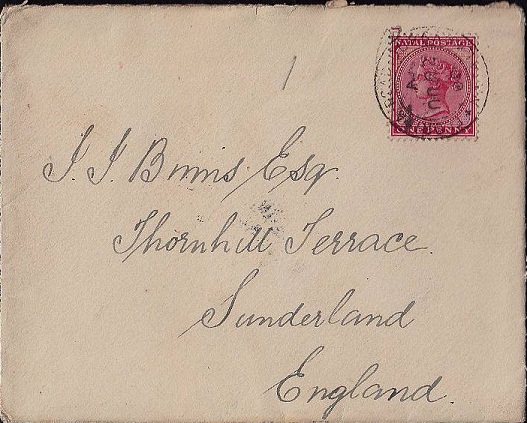 NATAL POSTAGE
ONE PENNY
J. J. Binns Esq.
Thornhill Terrace.
Sunderland
England.